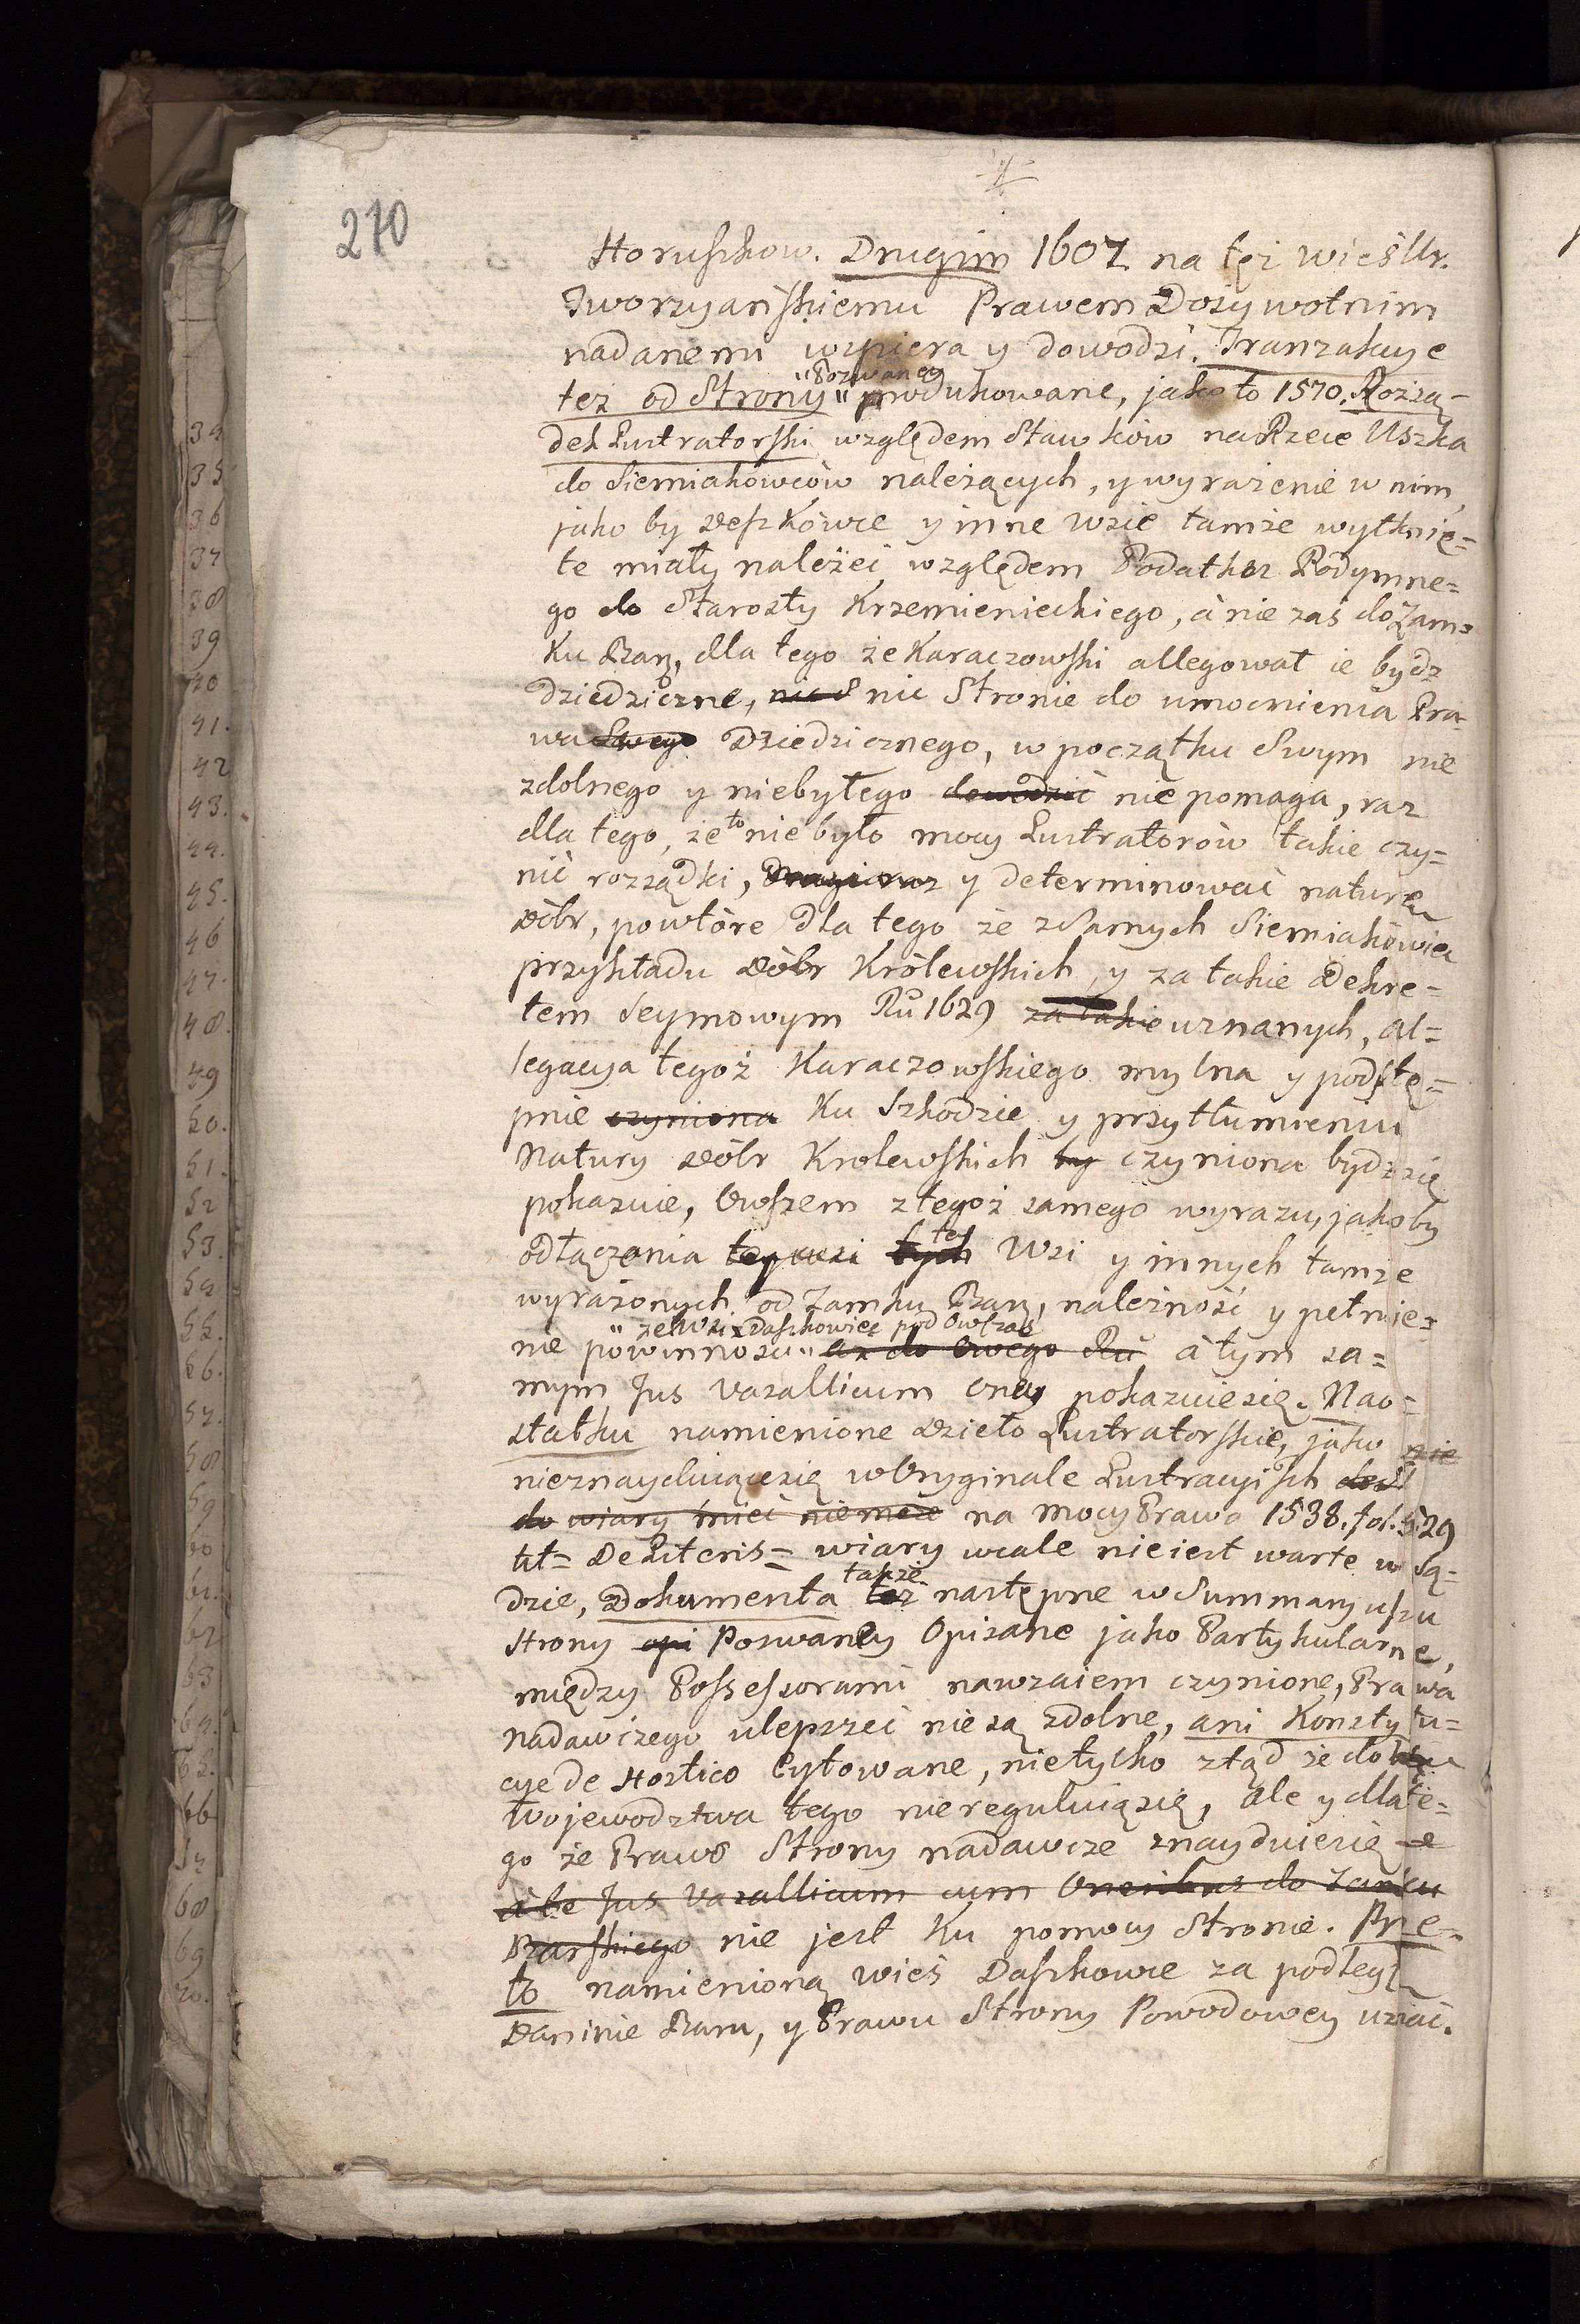 270
Horuszkow. Drugim 1607 na tęż wieś Ur.
Tworzyańskiemu Prawem Dożywotnim
nadanemi wspiera y dowodzi. Tranzakcye
też od Strony "Pozwaney" produkowane, jako to 1570. Rozsą-
dek Lustratorski względem Stawków na Rzece Uszka
do Siemiakowców należących, y wyrażenie w nim,
jako by Deszkowce y inne wsie tamże wytknię=
te miały należeć względem Podatku Podymne=
go do Starosty Krzemienieckiego, à nie zaś do Zam=
ku Bar, dla tego że Karaczowski allegował ie bydz
dziedziczne, nic Stronie do umocnienia Pra-
wa Swego Dziedzicznego, w początku Swym nie
zdolnego y niebyłego dowodzić nie pomaga, raz
dla tego, że to nie było mocy Lustratorów takie czy=
nić rozsądki, y determinować nature
dòbr, powtóre dla tego że z Samych Siemiakowiec
przykładu dòbr Królewskich, y za takie Dekre=
tem Seymowym Rũ 1629 za takie uznanych, al=
legacya tegoż Karaczowskiego mylna y podstę=
pnie czyniona Ku Szkodzie y przytłumieniu
Natury dòbr Krolewskich by czyniona bydz się
pokazuie, Owszem z tegoż samego wyrazu, jakoby
odłączenia tey wsi tych tey Wsi y innych tamże
wyrażonych od Zamku Bar, należność y pełnie=
nie powinności "ze Wsi Daszkowiec pod Owczas" aż do Owego Rũ à tym sa=
mym Jus Vasallicum Oney pokazuie się. Nao=
statku namienione Dzieło Lustratorskie, jako nie
nieznayduiące się w Oryginale Lustracyi Ich
do wiary mieć nie może na mocy Prawa 1538. fol. 529
tit= De Literis= wiary wcale nie iest warte w Są=
dzie, Dokumenta też także następne w Summaryuszu
Strony opi Pozwaney Opisane jako Partykularne,
między Possessorami nawzaiem czynione, Prawa
nadawczego ulepszeć nie są zdolne, ani Konstytu=
cye de Hostico Cytowane, nietylko ztąd że do
Wojewodztwa tego nie reguluią się, ale y dla te=
go że Prawo Strony nadawcze znayduie się
à te Jus Vasallicum cum Oneribus do Zamku
Barskiego nie jest Ku pomocy Stronie. Prze-
to namienioną wieś Daszkowce za podległą
Daninie Baru, y Prawu Strony Powodowey uznać.
34
35
36
37
38
39
40
41.
42
43.
44.
45.
46
47.
48.
49
50.
51.
52
53.
54
55.
56.
57.
58
59
60
61.
62
63
64.
65.
66
67
68
69
70.